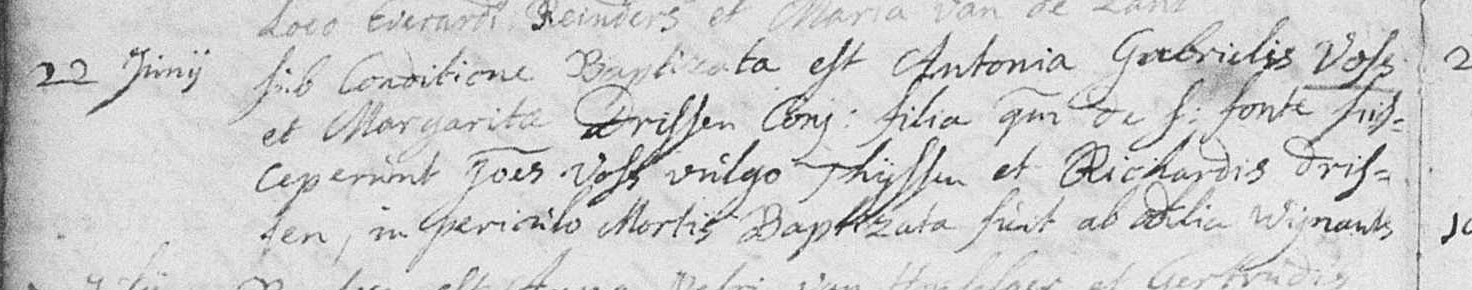 Loco Everardi Reinders et Maria van de Zant
22 Junij sub Conditione Baptizata est Antonia Gabrielis Voss
et Margarita Drissen Conj: filia qm de s: fonte sus=
ceperunt Joes Voss vulgo Thijssen et Richardis dris=
sen, in periculo Mortis Baptizata fuit ab odilia Wijnants
est Anna Petri van et Gertrudis